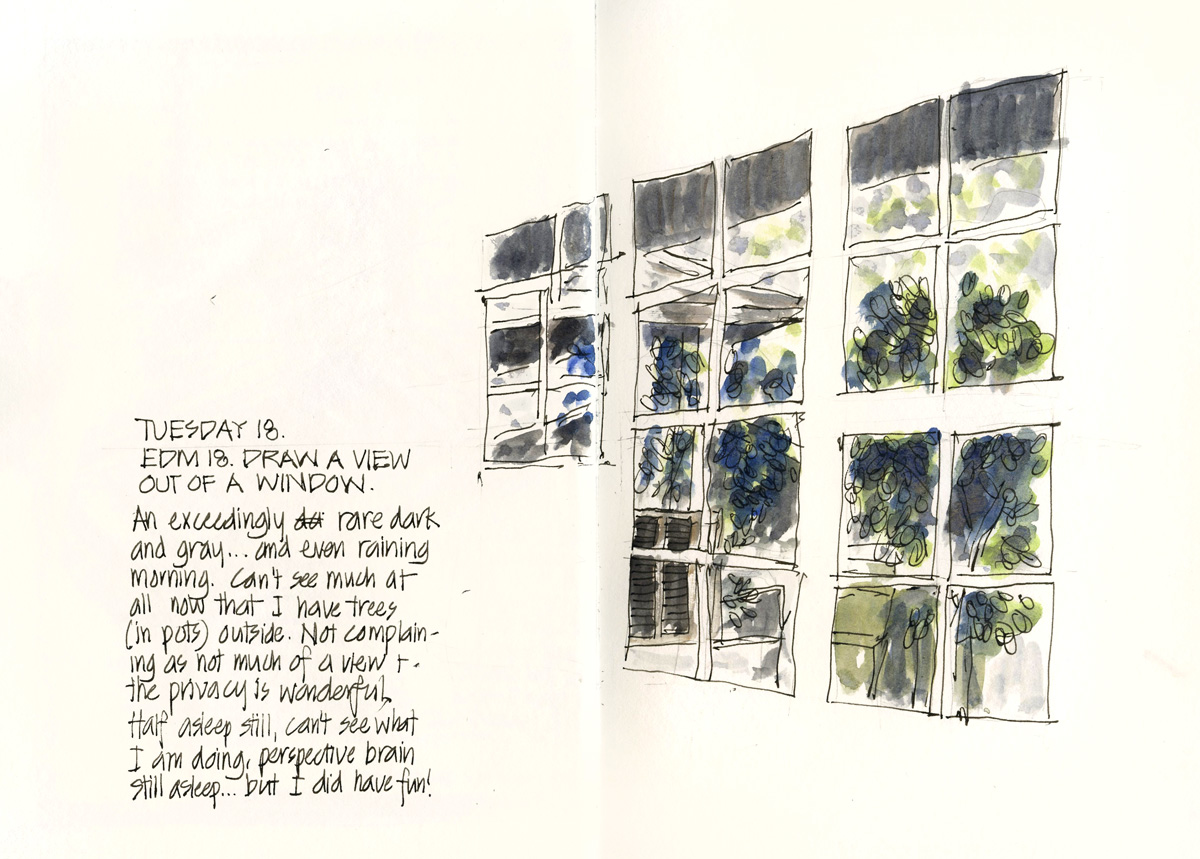 TUESDAY 18.
EDM 18. DRAW A VIEW
OUT OF A WINDOW.
An exceedingly rare dark
and gray... and even raining
morning. Can't see much at
all now that I have trees
(in pots) outside. Not complain-
ing as not much of a view + -
the privacy is wonderful,
Half asleep still, can't see what
I am doing, perspective brain
still asleep... but I did have fun!